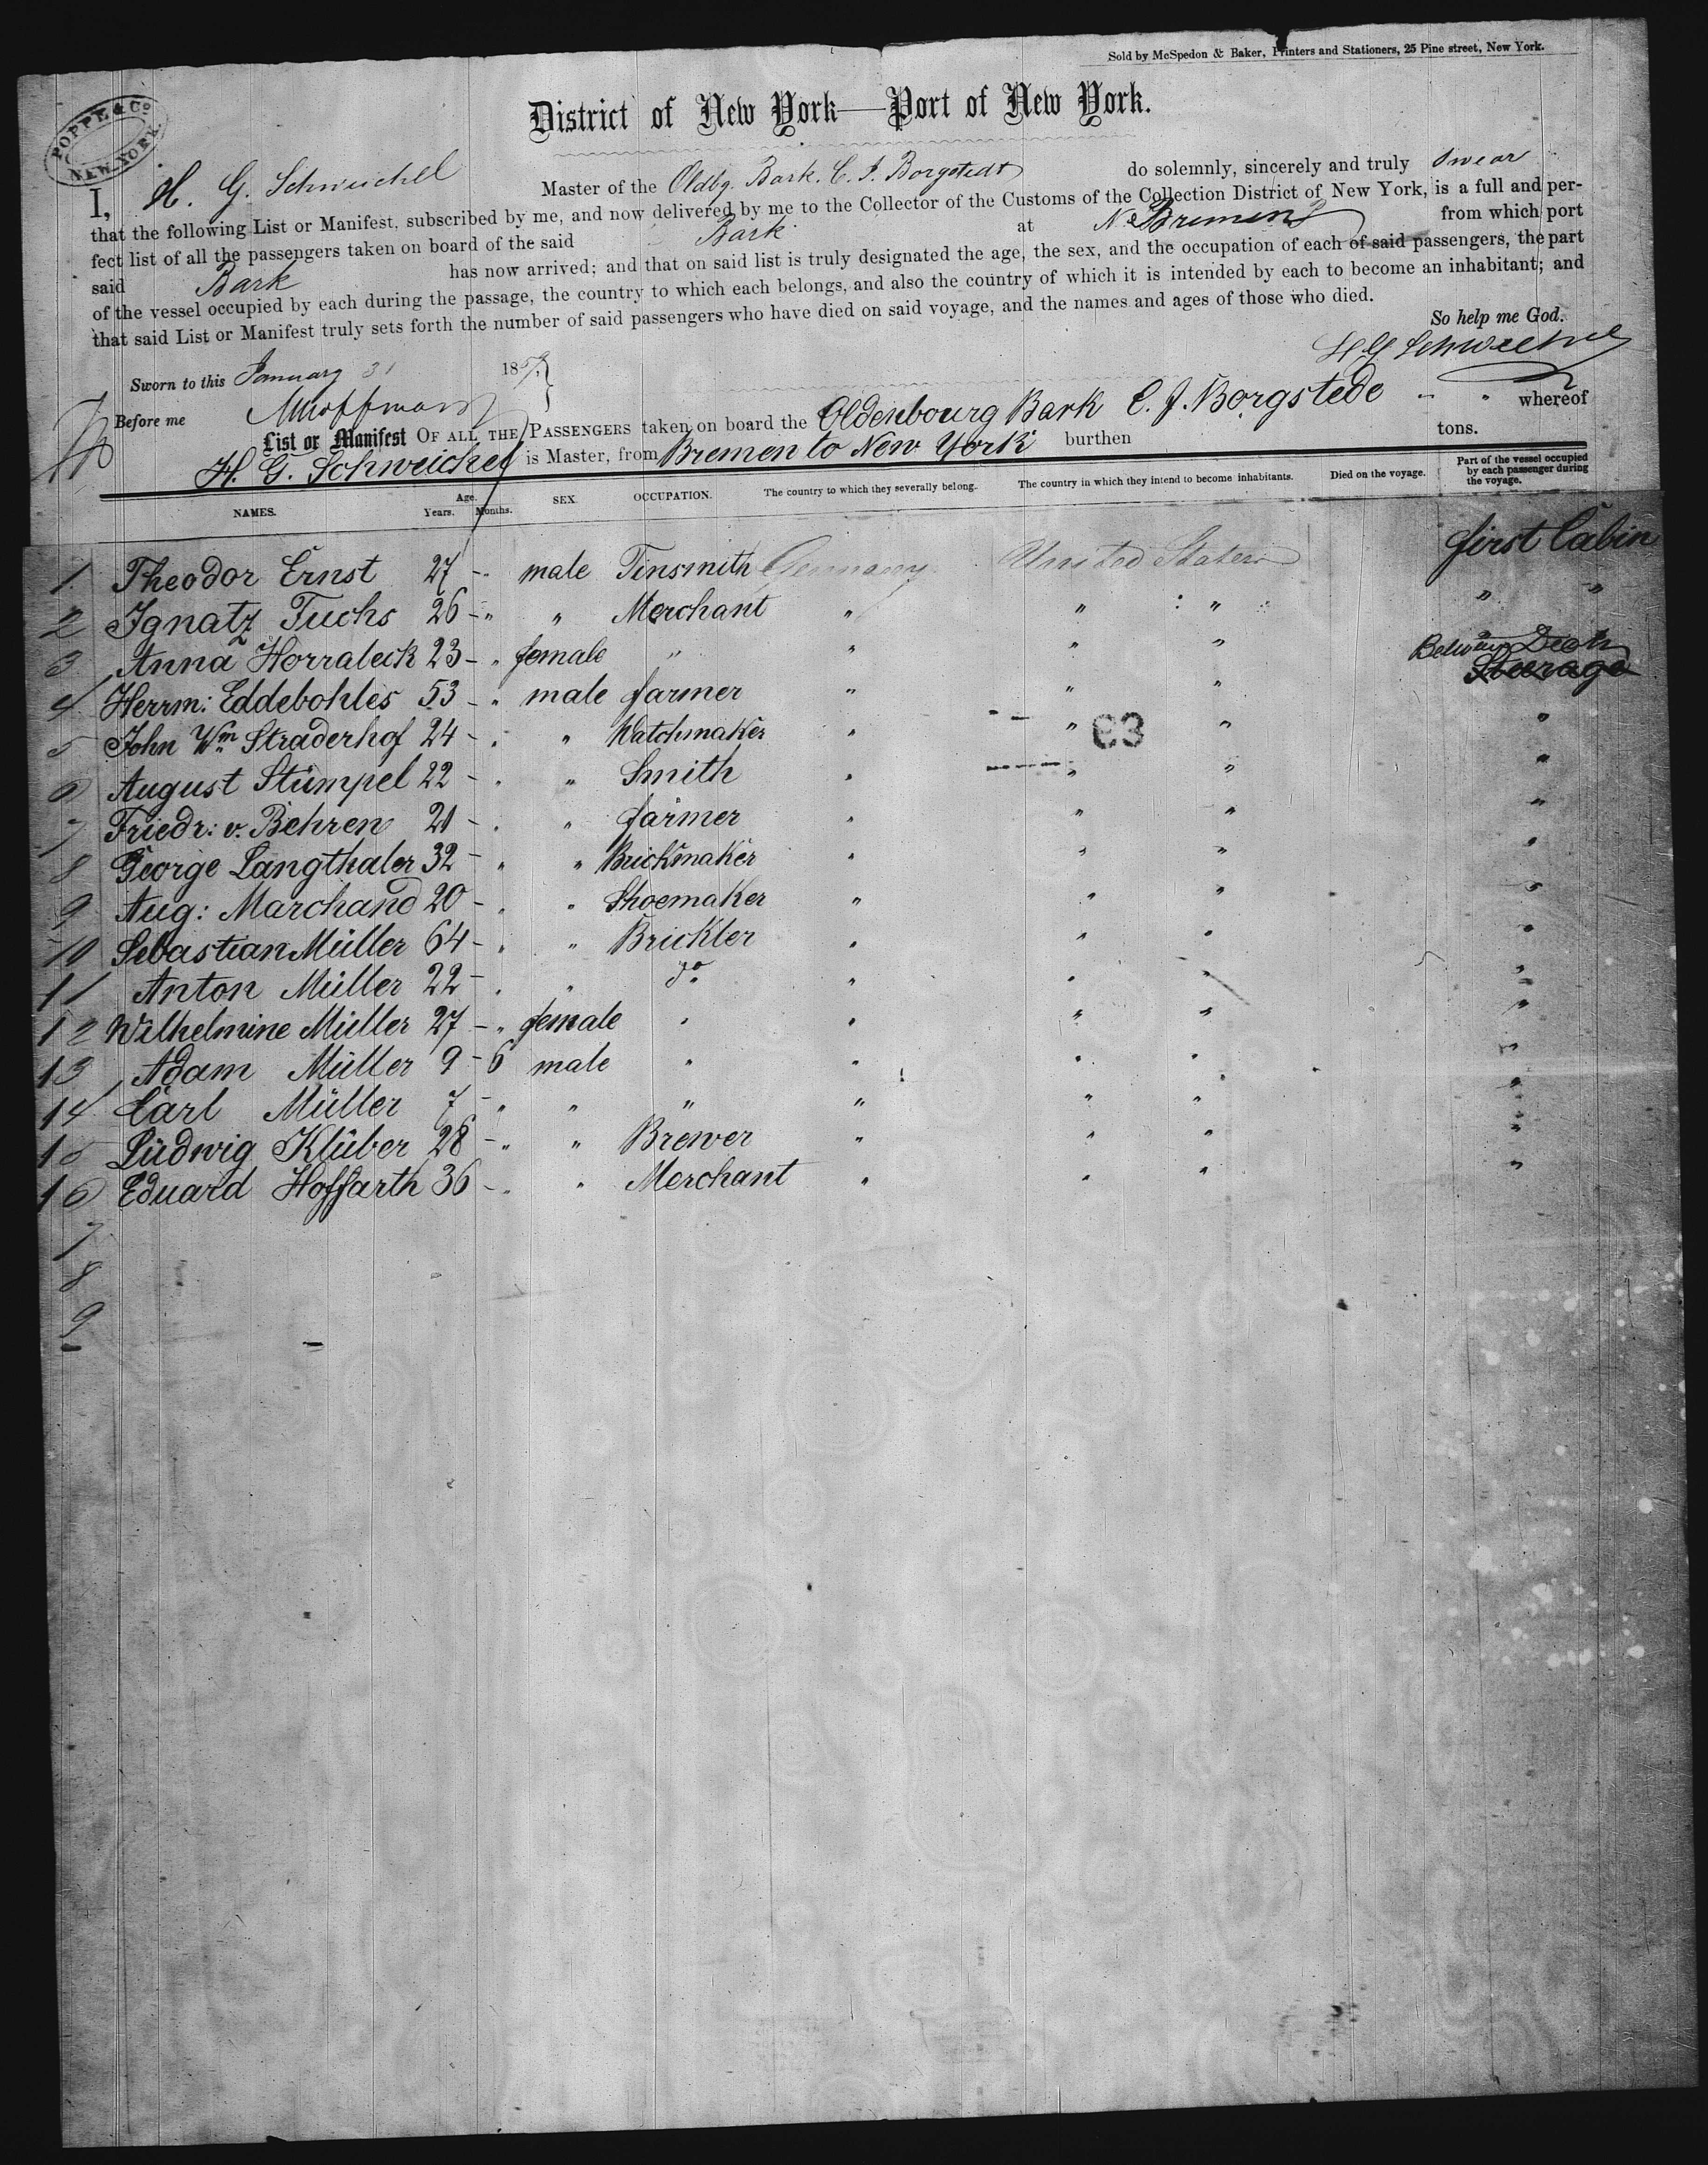 Sold by McSpedon & Baker, Printers and Stationers, 25 Pine street, New York.
POPPE & Co NEW-YORK.
District of New York—Port of New York.
I, H. G. Schweichel Master of the Oldbg. Bark. C. J. Borgstedt do solemnly, sincerely and truly swear
that the following List or Manifest, subscribed by me, and now delivered by me to the Collector of the Customs of the Collection District of New York, is a full and per-
fect list of all the passengers taken on board of the said Bark at Bremen from which port
said Bark has now arrived; and that on said list is truly designated the age, the sex, and the occupation of each of said passengers, the part
of the vessel occupied by each during the passage, the country to which each belongs, and also the country of which it is intended by each to become an inhabitant; and
that said List or Manifest truly sets forth the number of said passengers who have died on said voyage, and the names and ages of those who died.
So help me God.
H G Schweichel
Sworn to this January 31 185
Before me
List or Manifest OF ALL THE PASSENGERS taken on board the Oldenbourg Bark C. J. Borgstede " " whereof
H. G. Schweichel is Master, from Bremen to New York burthen tons.
NAMES. Age. Years. Months. SEX. OCCUPATION. The country to which they severally belong. The country in which they intend to become inhabitants. Died on the voyage. Part of the vessel occupied by each passenger during the voyage.
1 Theodor Ernst 27 - " male Tinsmith Germany United States first Cabin
2 Ignatz Fuchs 26 - " " Merchant " " " " "
3 Anna Horraleck 23 - " female " " " " Between Deck
Steerage
4 Herrm: Eddebohles 53 - " male farmer " " "
5 John Wm Straderhof 24 - " " Watchmaker " " " "
63
6 August Stümpel 22 - " " Smith " " " "
7 Friedr: v. Behren 21 - " " farmer " " " "
8 George Langthaler 32 - " " Brickmaker " " " "
9 Aug: Marchand 20 - " " Shoemaker " " " "
10 Sebastian Müller 64 - " " Brickler " " " "
11 Anton Müller 22 - " " do " " " "
12 Wilhelmine Müller 27 - " female " " " " "
13 Adam Müller 9 - 6 male " " " " "
14 Carl Müller 7 - " " " " " " "
15 Lüdwig Klüber 28 - " " Brewer " " " "
16 Eduard Hoffarth 36 - " " Merchant " " " "
7
8
9